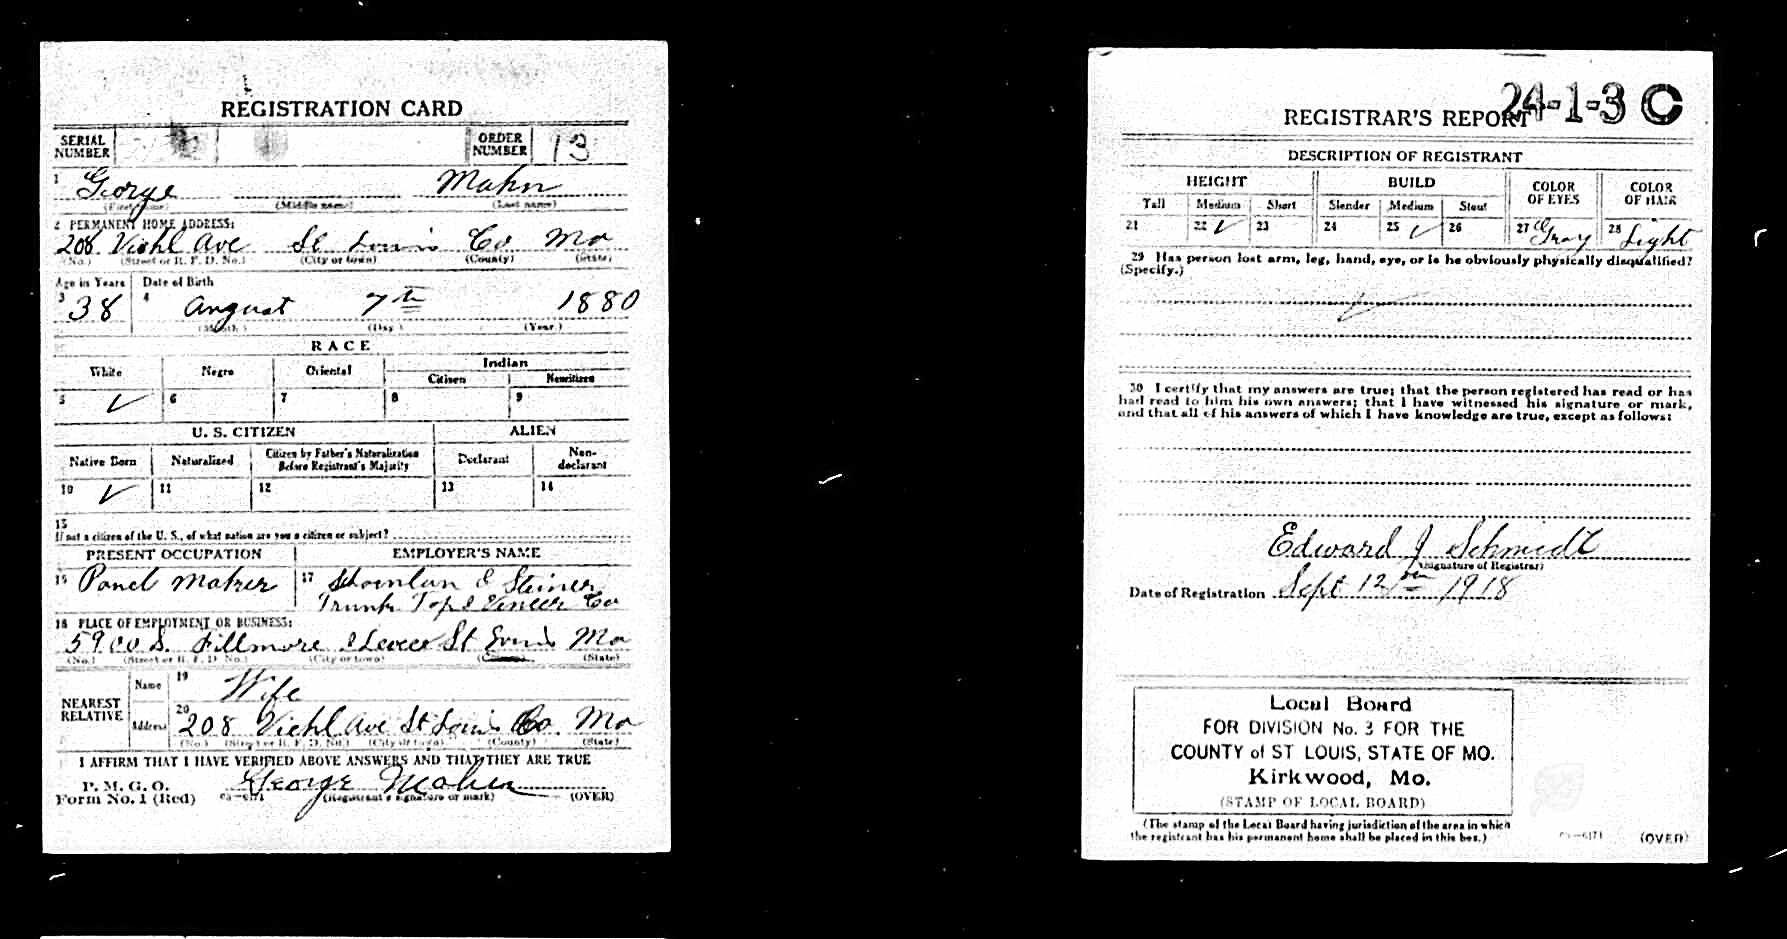 REGISTRATION CARD
SERIAL NUMBER
ORDER NUMBER 13
1 George Mahn
(First name) (Middle name) (Last name)
2 PERMANENT HOME ADDRESS:
208 Viehl Ave St Louis Co Mo
(No.) (Street or R. F. D. No.) (City or town) (County) (State)
Age in Years Date of Birth
3 38 4 August 7th 1880
(Month.) (Day.) (Year.)
RACE
White Negro Oriental Indian
Citizen Noncitizen
5 ✓ 6 7 8 9
U. S. CITIZEN ALIEN
Native Born Naturalized Citizen by Father's Naturalization Before Registrant's Majority Declarant Non-declarant
10 ✓ 11 12 13 14
15
If not a citizen of the U. S., of what nation are you a citizen or subject?
PRESENT OCCUPATION EMPLOYER'S NAME
16 Panel Maker 17 & Steiner
Trunk Top & Veneer Co
18 PLACE OF EMPLOYMENT OR BUSINESS:
5900 S. Fillmore & Levee St Louis Mo
(No.) (Street or R. F. D. No.) (City or town) (County) (State)
NEAREST RELATIVE
Name 19 Wife
Address 20 208 Viehl Ave St Louis Co. Mo
(No.) (Street or R. F. D. No.) (City or town) (County) (State)
I AFFIRM THAT I HAVE VERIFIED ABOVE ANSWERS AND THAT THEY ARE TRUE
P. M. G. O.
Form No. 1 (Red) 03—6171 George Mahn (OVER)
(Registrant's signature or mark)
24-1-3 C
REGISTRAR'S REPORT
DESCRIPTION OF REGISTRANT
HEIGHT BUILD COLOR OF EYES COLOR OF HAIR
Tall Medium Short Slender Medium Stout
21 22 ✓ 23 24 25 ✓ 26 27 Gray 28 Light
29 Has person lost arm, leg, hand, eye, or is he obviously physically disqualified?
(Specify.)
30 I certify that my answers are true; that the person registered has read or has
had read to him his own answers; that I have witnessed his signature or mark,
and that all of his answers of which I have knowledge are true, except as follows:
Edward J Schmidt
(Signature of Registrar)
Date of Registration Sept 12th 1918
Local Board
FOR DIVISION No. 3 FOR THE
COUNTY of ST LOUIS, STATE OF MO.
Kirkwood, Mo.
(STAMP OF LOCAL BOARD)
(The stamp of the Local Board having jurisdiction of the area in which
the registrant has his permanent home shall be placed in this box.)
03—6171 (OVER)